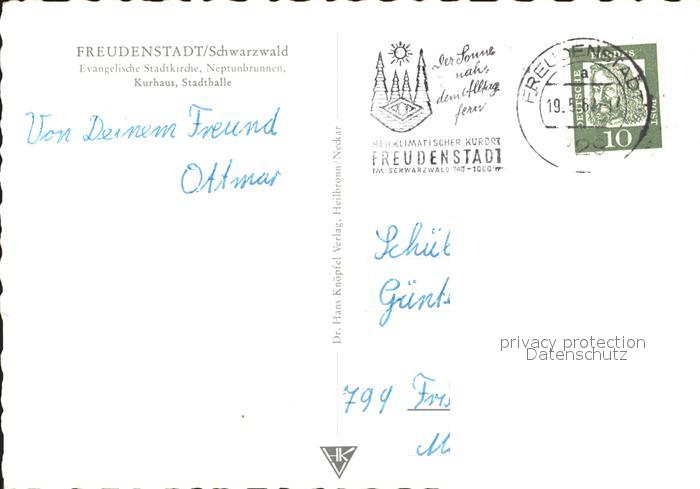 FREUDENSTADT/Schwarzwald
Evangelische Stadtkirche, Neptunbrunnen,
Kurhaus, Stadthalle
Von Deinem Freund
Ottmar
Dr. Hans Knöpfel Verlag, Heilbronn/Neckar
HK
Der Sonne
nah,
dem Alltag
fern
HEILKLIMATISCHER KURORT
FREUDENSTADT
IM SCHWARZWALD 740-1000 m
FREUDENSTADT
a
19.5.
DEUTSCHE
POST
10
Schül
Günt
799 Fri
privacy protection
Datenschutz